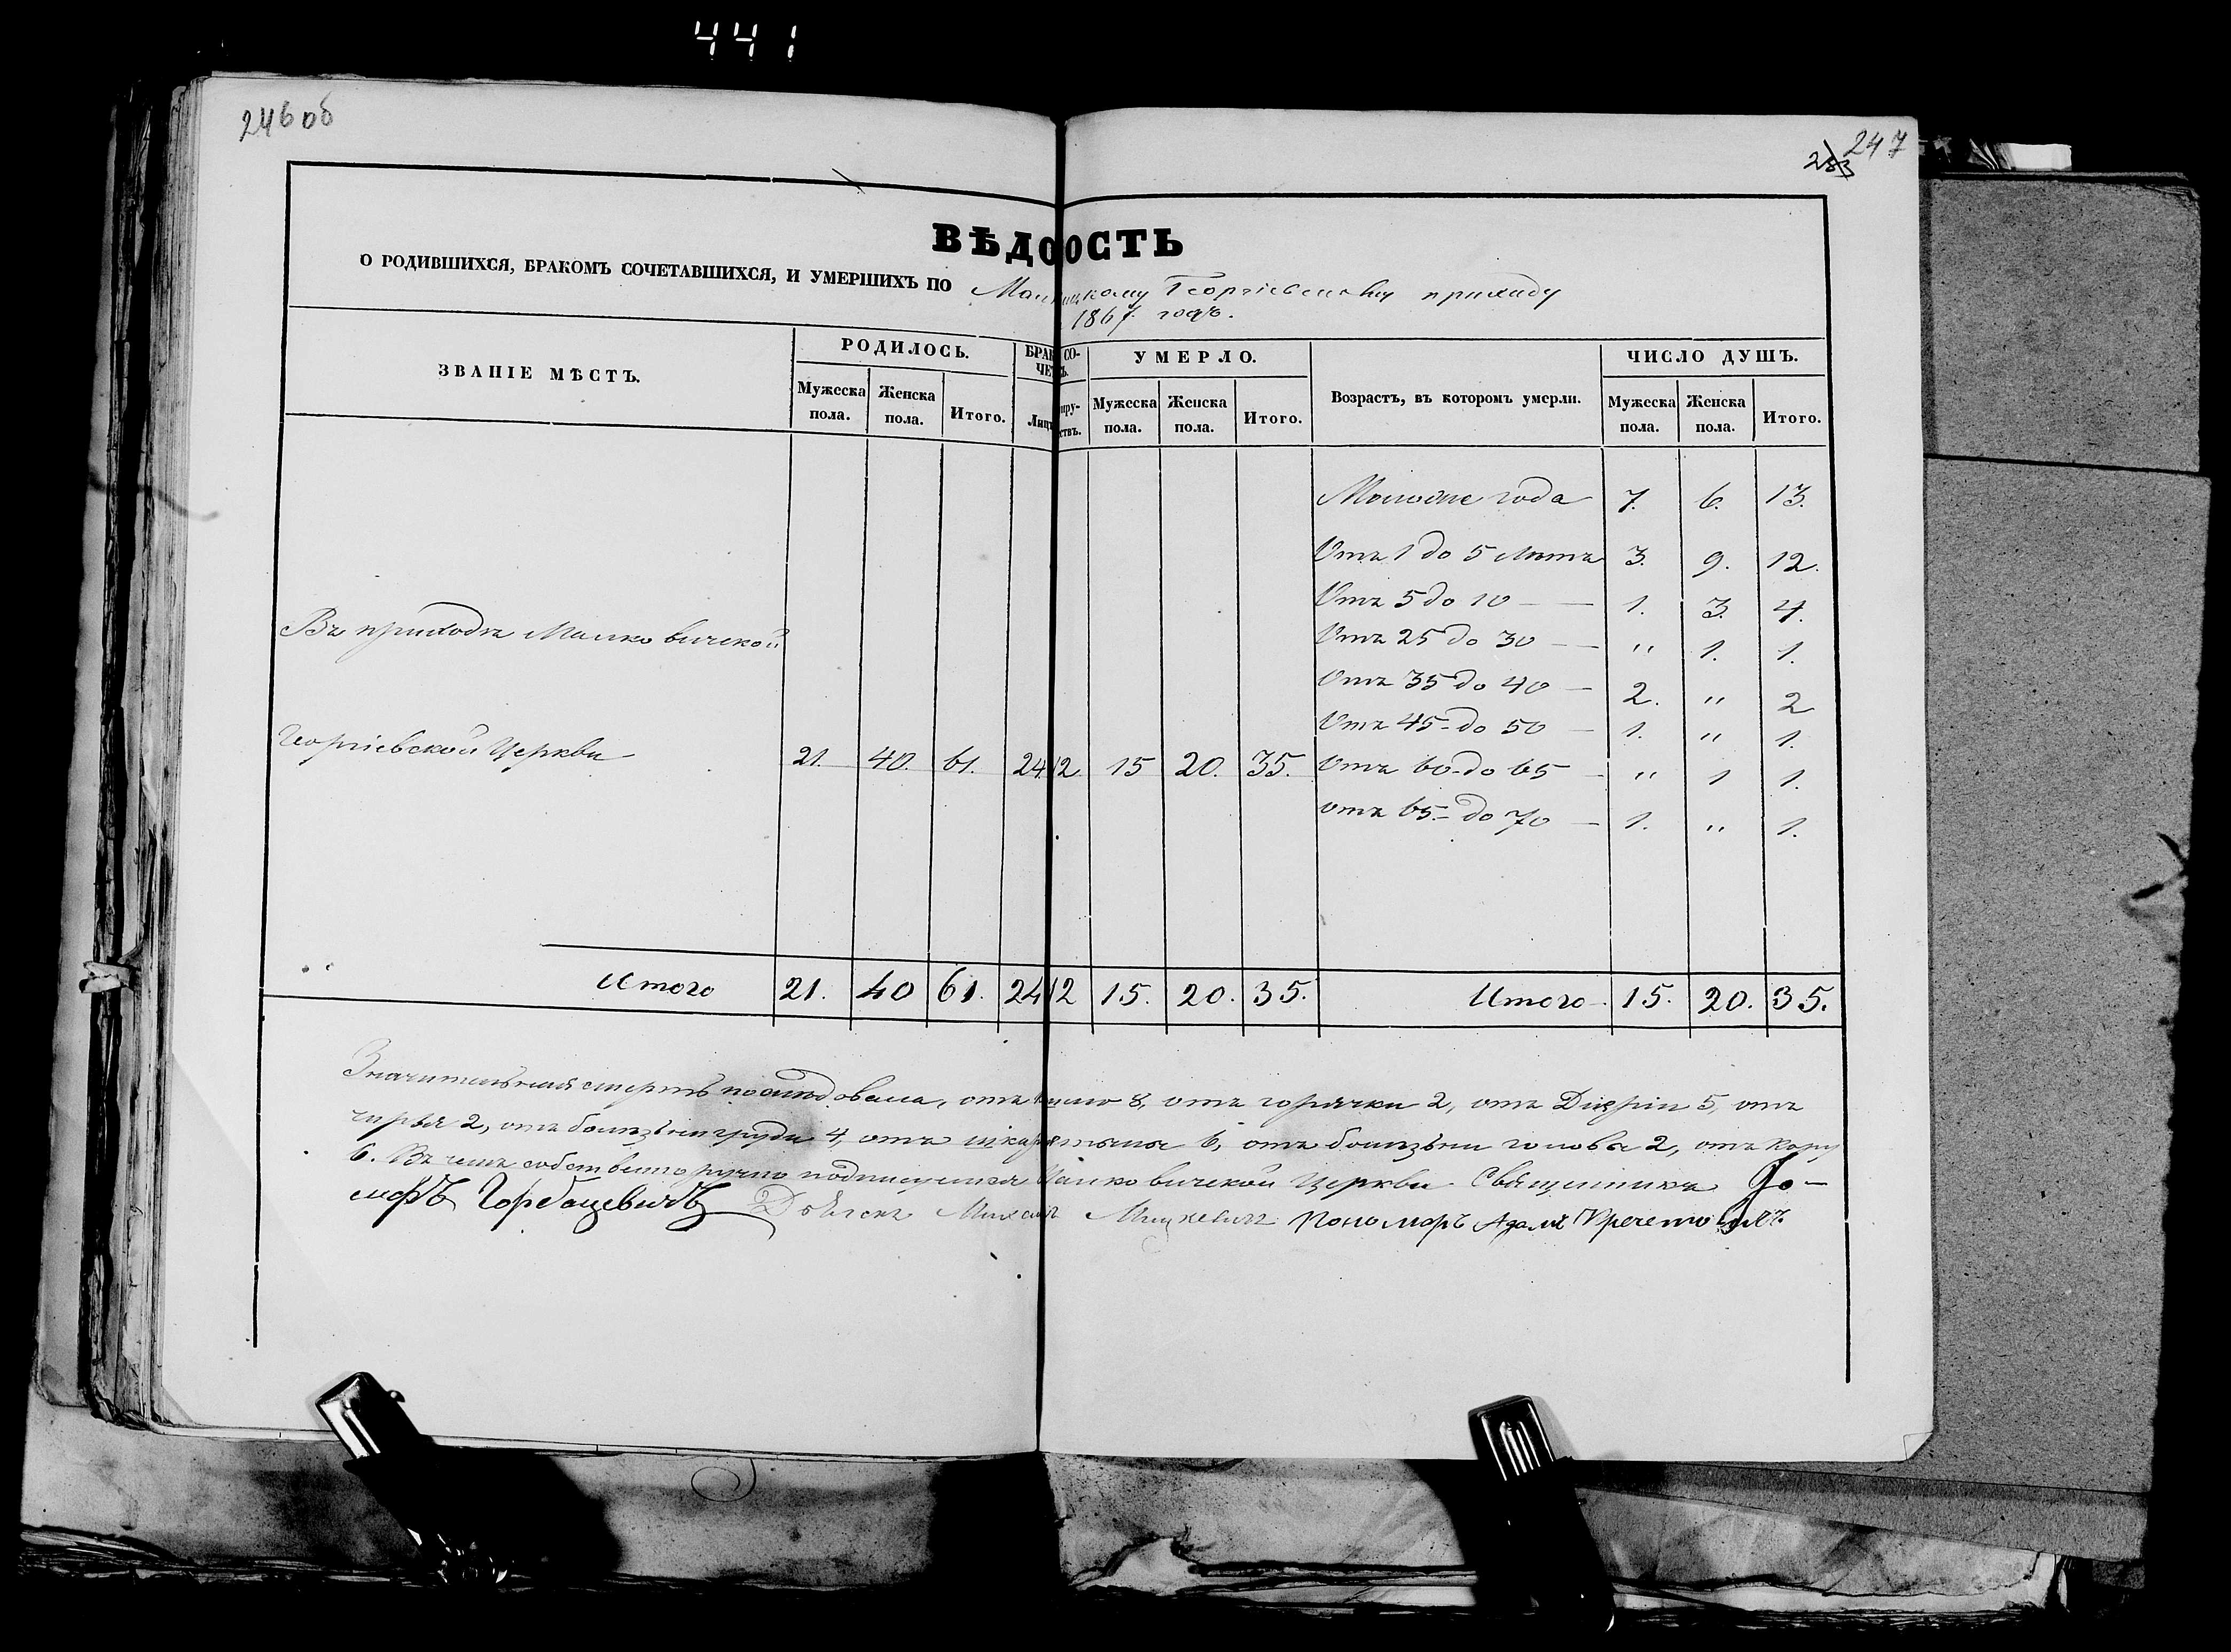 441
246 об
247
283
ВѢДООСТЬ
О РОДИВШИХСЯ, БРАКОМЪ СОЧЕТАВШИХСЯ, И УМЕРШИХЪ ПО Георгіевскому приходу
1867 годъ.
ЗВАНІЕ МѢСТЪ. РОДИЛОСЬ. БРАК СО- ЧЕТ Ъ. УМЕРЛО. Возрастъ, въ которомъ умерли. ЧИСЛО ДУШЪ.
Мужеска пола. Женска пола. Итого. Лицъ пру- ствъ. Мужеска пола. Женска пола. Итого. Мужеска пола. Женска пола. Итого.
Моложе года 7. 6. 13.
Отъ 1 до 5 лѣтъ 3. 9. 12.
Отъ 5 до 10 — — 1. 3. 4.
Въ приходѣ Малковичской
Отъ 25 до 30 — — " 1. 1.
Отъ 35 до 40 — 2. " 2
Отъ 45 - до 50 — 1. " 1.
Георгіевской Церкви 21. 40. 61. 24. 12. 15 20. 35. Отъ 60 - до 65 — " 1 1.
отъ 65 - до 70 — 1. " 1.
Итого 21. 40 61. 24 12 15. 20. 35. Итого 15. 20. 35.
Значительная смерть послѣдовала, отъ 8, отъ горячки 2, отъ 5, отъ
2, отъ болѣзни груди 4, отъ 6, отъ болѣзни голова 2, отъ кору
6. Въ чемъ собственноручно подписуемся Малковичской Церкви Священникъ Іо-
сифъ Горбацевичъ Дьячекъ Михаилъ Мицкевичъ Пономарь Адамъ